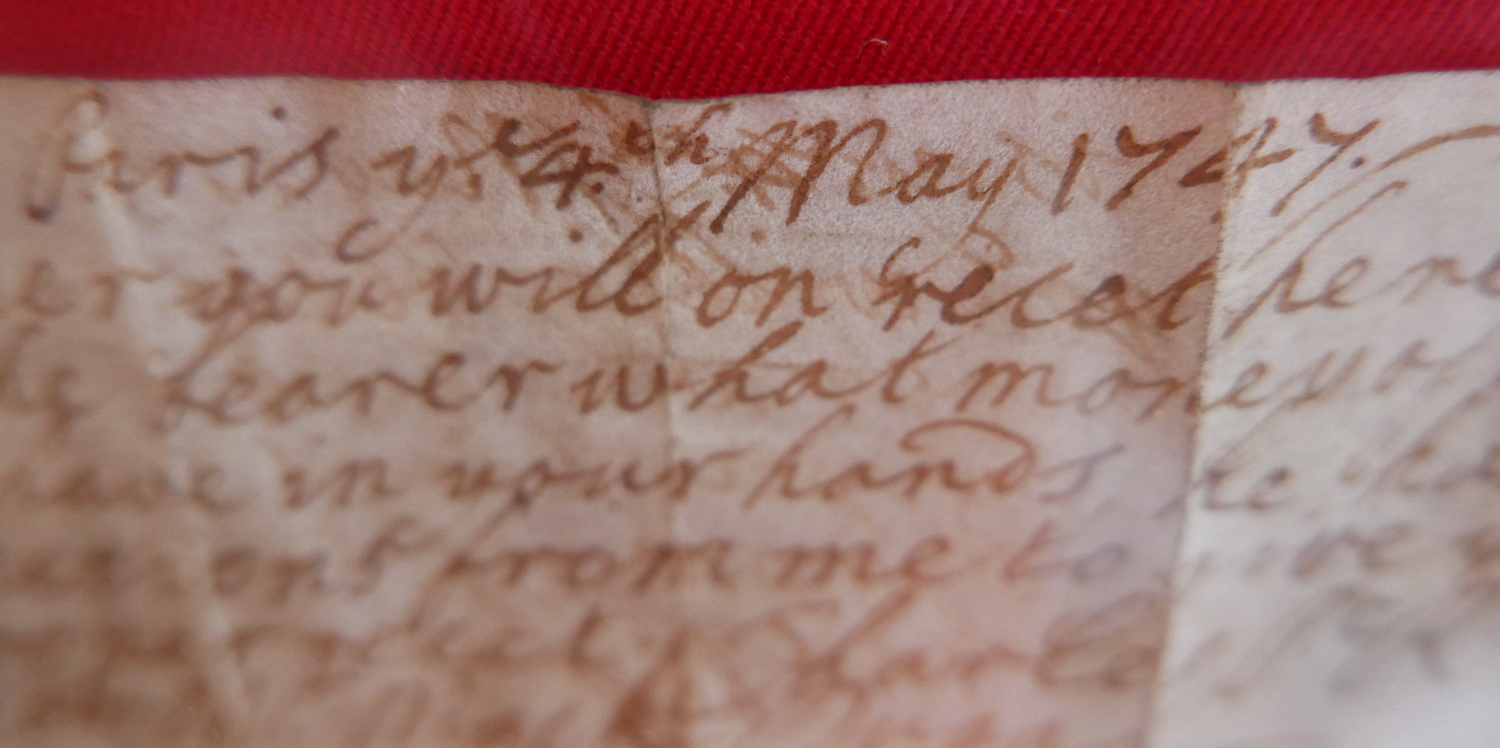 Paris yᵉ. 4.ᵗʰ May 1747.
you will on recet here
bearer what money
have in your hands he has
from me to give
Charles